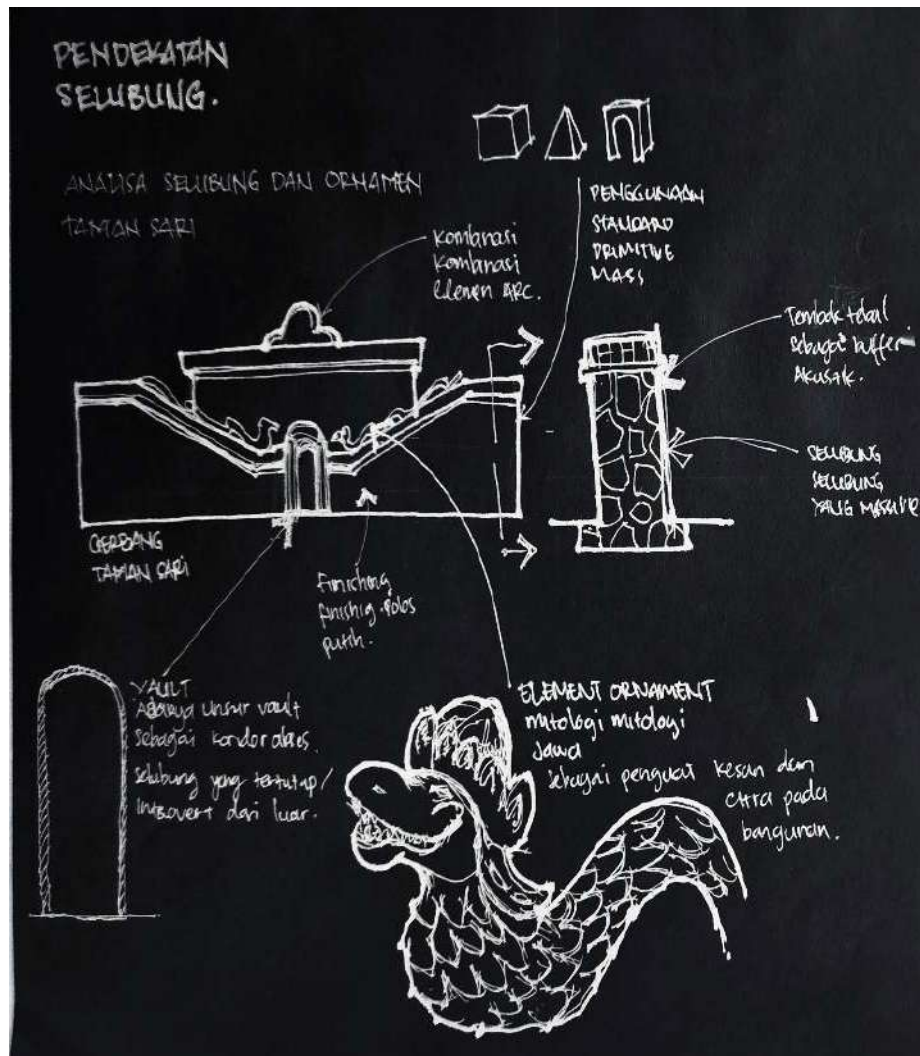 PENDEKATAN
SELUBUNG.
ANALISA SELUBUNG DAN ORNAMEN
TAMAN SARI
kombinasi
kombinasi
Elemen ARC.
PENGGUNAAN
STANDARD
PRIMITIVE
MASS
Tembok tebal
sebagai buffer
Akustik.
SELUBUNG
SELUBUNG
YANG MASIVE
GERBANG
TAMAN SARI
Finishing
finishig polos
putih.
VAULT
Adanya unsur vault
sebagai koridor akses.
Selubung yang tertutup/
Introvert dari luar.
ELEMENT ORNAMENT
mitologi mitologi
Jawa
sebagai penguat kesan dan
citra pada
bangunan.